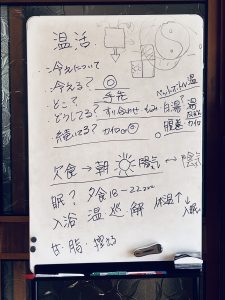 温活
・冷えについて
・冷える? ◎
・どこ? 手先
・どうしてる? すり合わせ
ペットボトル温
白湯
腹巻 カイロ
・続いてる? カイロ
欠食→朝 陽気→陰気
眠? 夕食18-22
入浴 温 巡 解 体温↑↓
入眠
甘・脂・